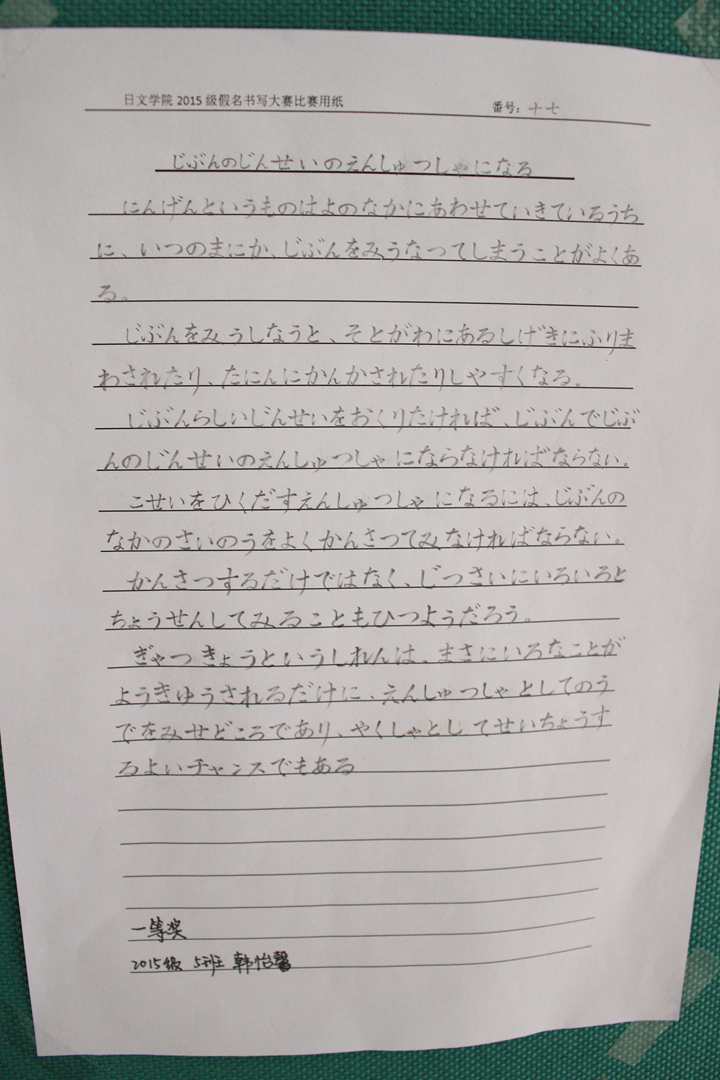 日文学院 2015 级假名书写大赛比赛用纸 番号: 十七
じぶんのじんせいのえんしゅつしゃになる
にんげんというものはよのなかにあわせていきているうち
に、いつのまにか、じぶんをみうなってしまうことがよくあ
る。
じぶんをみうしなうと、そとがわにあるしげきにふりま
わされたり、たにんにかんかされたりしやすくなる。
じぶんらしいじんせいをおくりたければ、じぶんでじぶ
んのじんせいのえんしゅつしゃにならなければならない。
こせいをひくだすえんしゅつしゃになるには、じぶんの
なかのさいのうをよくかんさつてみなければならない。
かんさつするだけではなく、じつさいにいろいろと
ちょうせんしてみることもひつようだろう。
ぎゃつきょうというしれんは、まさにいろなことが
ようきゆうされるだけに、えんしゅつしゃとしてのう
でをみせどころであり、やくしゃとしてせいちょうす
るよいチャンスでもある
一等奖
2015级 5班 韩怡馨